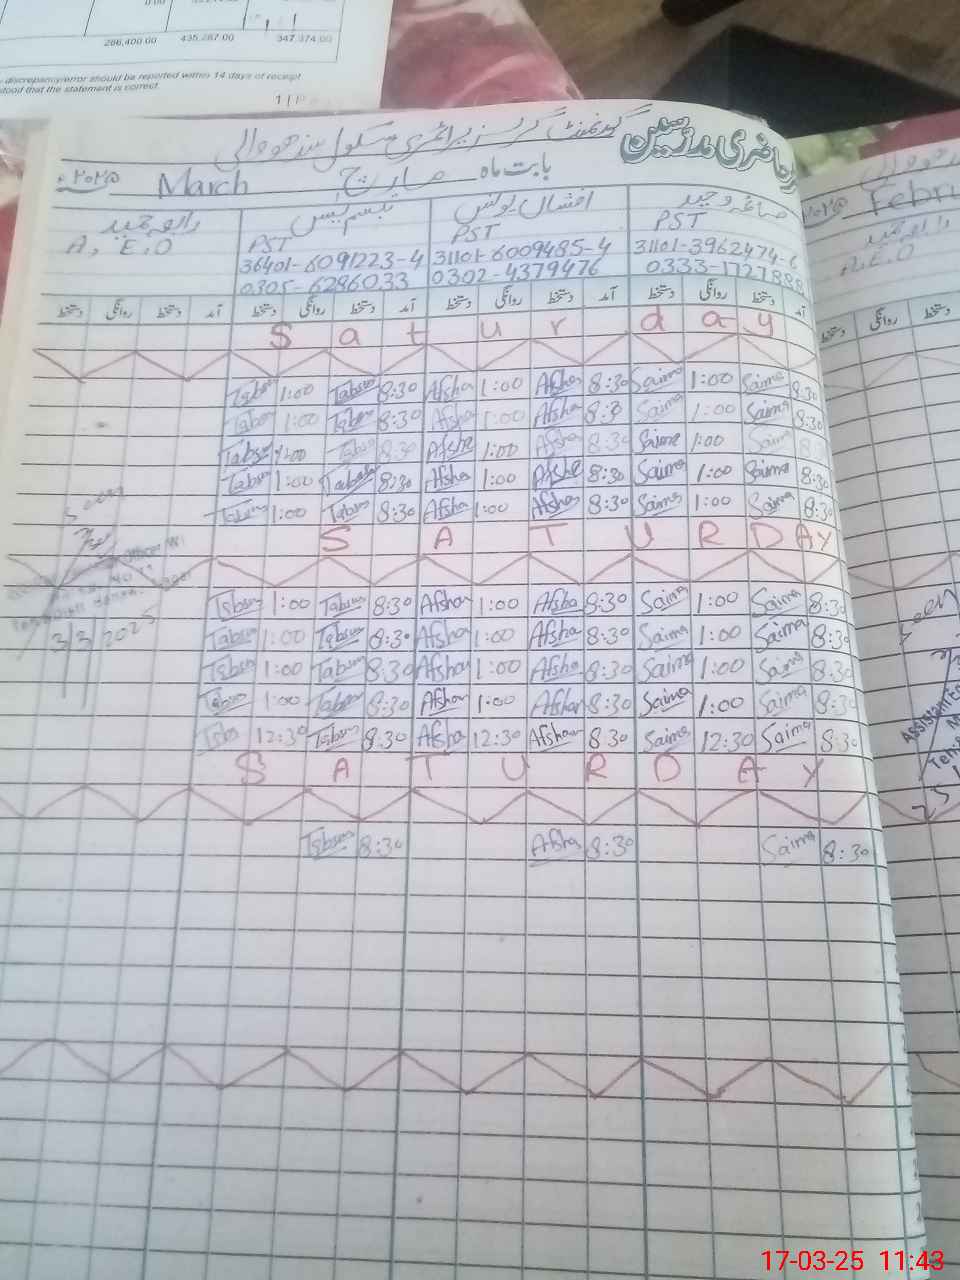 0.00
286,400.00 435,287.00 347,374.00
discrepancy/error should be reported within 14 days of receipt
stood that the statement is correct.
حاضری مدرسین گورنمنٹ گرلز پرائمری سکول سندھووالی
بابت ماہ مارچ March ۲۰۲۵ء
صائمہ وحید افشاں یونس تبسم یٰس
PST PST PST A.E.O
31101-3962474-6 31101-6009485-4 36401-6091223-4
0333-1727888 0302-4379476 0305-6286033
آمد دستخط روانگی دستخط آمد دستخط روانگی دستخط آمد دستخط روانگی دستخط آمد دستخط روانگی دستخط
Saturday
Tabsm 1:00 Tabsm 8:30 Afsha 1:00 Afshan 8:30 Saima 1:00 Saima 8:30
Tabsm 1:00 Tabsm 8:30 Afsha 1:00 Afsha 8:30 Saima 1:00 Saima 8:30
Tabsm 1:00 Tabsm 8:30 Afsha 1:00 Afsha 8:30 Saima 1:00 Saima 8:30
Tabsm 1:00 Tabsm 8:30 Afsha 1:00 Afsha 8:30 Saima 1:00 Saima 8:30
Tabsm 1:00 Tabsm 8:30 Afsha 1:00 Afshan 8:30 Saima 1:00 Saima 8:30
SATURDAY
Tabsm 1:00 Tabsm 8:30 Afshan 1:00 Afsha 8:30 Saima 1:00 Saima 8:30
Tabsm 1:00 Tabsm 8:30 Afshan 1:00 Afsha 8:30 Saima 1:00 Saima 8:30
Tabsm 1:00 Tabsm 8:30 Afshan 1:00 Afsha 8:30 Saima 1:00 Saima 8:30
Tabsm 1:00 Tabsm 8:30 Afshan 1:00 Afshan 8:30 Saima 1:00 Saima 8:30
Tabs 12:30 Tabsm 8:30 Afsha 12:30 Afshan 8:30 Saima 12:30 Saima 8:30
SATURDAY
Tabsm 8:30 Afsha 8:30 Saima 8:30
Seen
3/3/2025
۲۰۲۵ Febru
A.E.O
دستخط روانگی دستخط
Seen
Assistant Ed
17-03-25 11:43